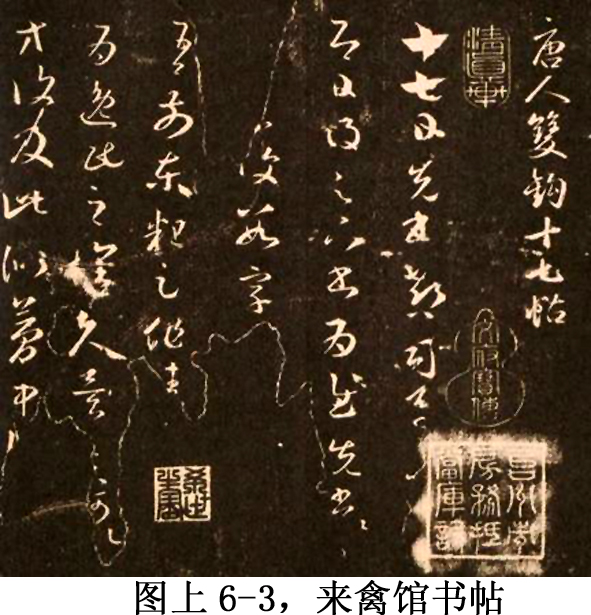 唐人雙鉤十七帖
十七日先書郗司馬未
即日得足下書為慰先書以
復數字
吾前東粗足作佳
為逸民之懷久矣足下何以
方復及此似夢中
图上 6-3，来禽馆书帖